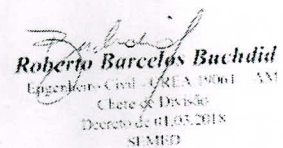 Roberto Barcelos Buchdid
Engenheiro Civil - CREA 19061 - AM
Chefe de Divisão
Decreto de 01.03.2018
SEMED